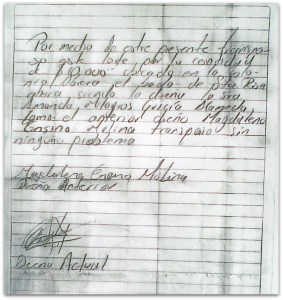 Por medio de este presente transpa-
so este lote por la cantidad
de $10,000 ubicado en la colo-
nia el de Poza Rica
siendo la dueña la sra.
Amanda Milagros García
como el anterior dueño Magdaleno
Encino Molina transpaso sin
ningun problema
Magdaleno Encino Molina
Dueño Anterior
Dueño Actual